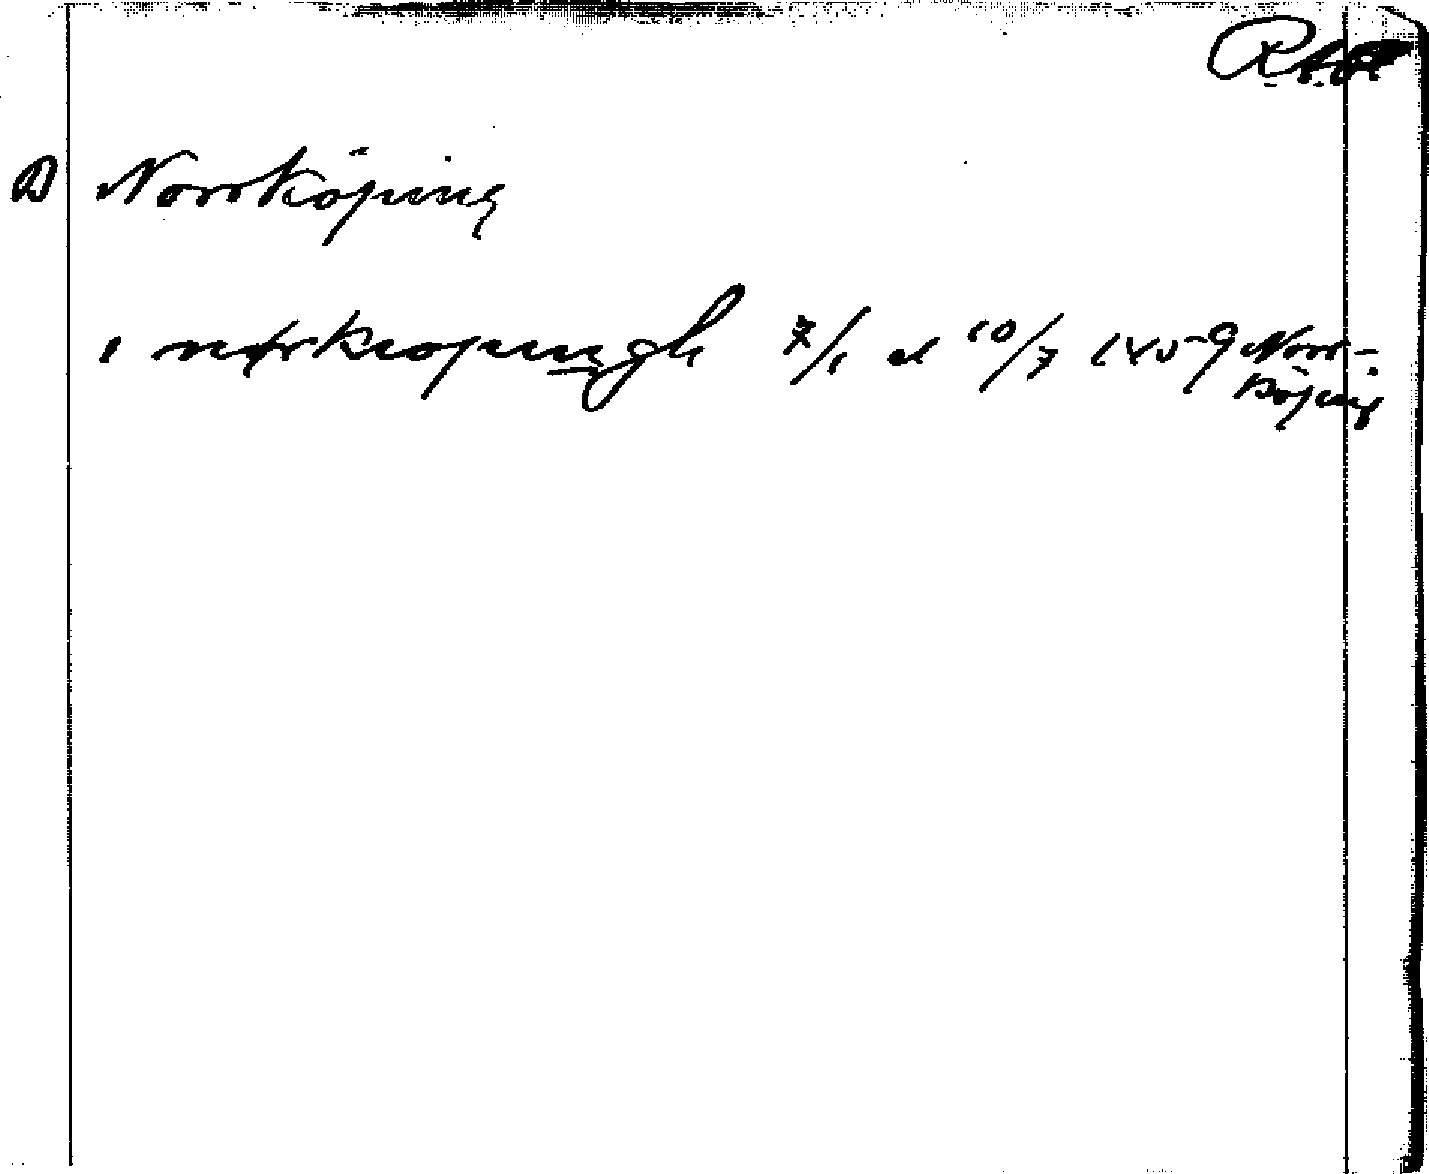 D Norrköping
i nørkiopingh 7/1 el 10/7 1459 Norr-
köping